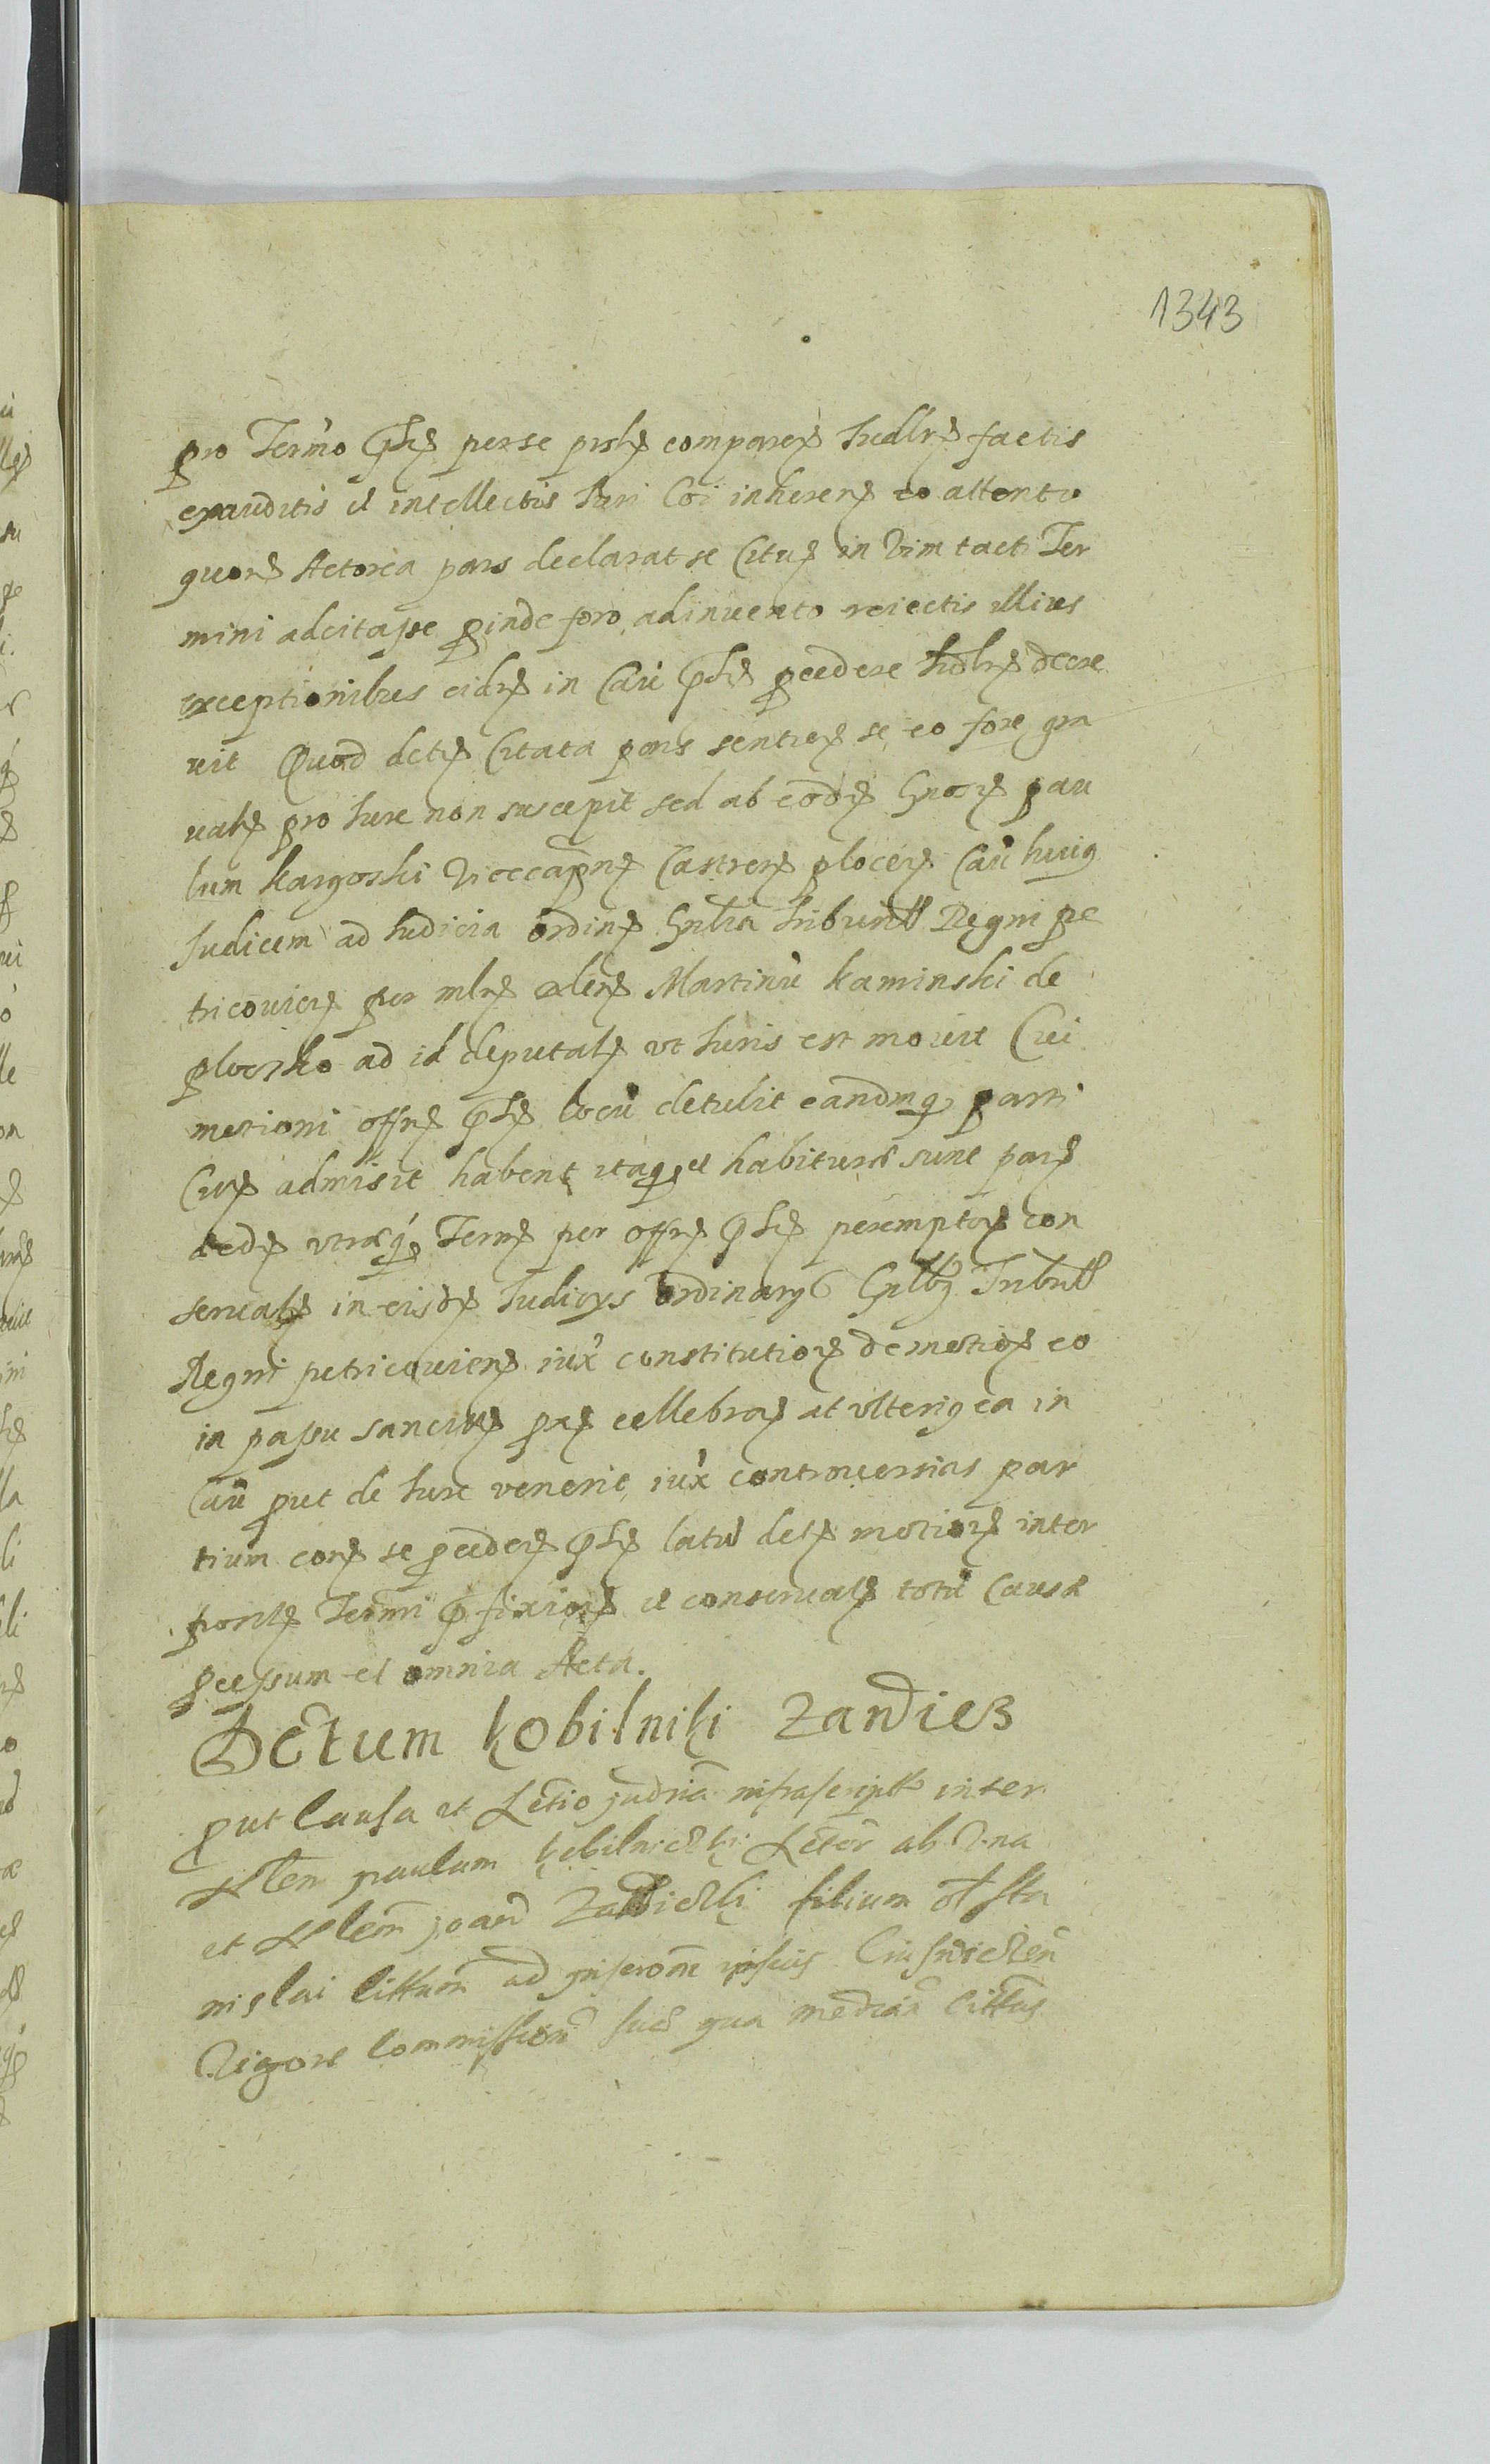 1343
pro Termo pñtẽ per se prñtẽ comparẽ Iudlrẽ factis
exauditis et intellectis Iuri Coi inherenẽ eo attento
quonẽ Actorea pars declarat se Cituẽ in Vim tacti Ter
mini adcitasse proinde foro adinuento reiectis illius
exceptionibus eidẽ in Cau pñtẽ procedere Iudlrẽ decre
uit Quod detẽ Citata pars sentieẽ se eo fore gra
uatẽ pro Iure non suscepit sed ab eodẽ Gnosẽ pau
lum Kargoski Vicecapnẽ Castrenẽ plocenẽ Cau huig
Iudicem ad Iudicia ordinẽ Gnlia Tribunll Regni pe
tricouienẽ per mlrẽ Martinu Kaminski de
plocsko ad id deputatẽ vt Iuris est mouit Cui
motioni offnẽ pñtẽ locu detulit eandmq parti
Citẽ admisit habent itaq et habitura sunt parẽ
utraq Termẽ per offnẽ pñtẽ peremptorẽ con
seruatẽ in eisdẽ Iudicys ordinarys Gnlbg Tribunll
Regni petricouienẽ iux constitutionẽ de motionẽ eo
in passu sancitẽ cellebranẽ at vlterig ea in
Cau put de Iure venerit iux controuersias par
tium corẽ se procedenẽ pñtẽ latu detẽ motionẽ inter
positẽ Termi pfixionẽ et conseruatẽ totu Causæ
pcessum et omnia Acta.
Dectum Kobilniki Zandies
put Causa et Actio infrascripta inter
Nlem paulum Kobilnicki Actor ab Vna
et Nlem Joan filium olim Sta
nislai Cittum ad
Vigore Commissionis suæ qua Cittus